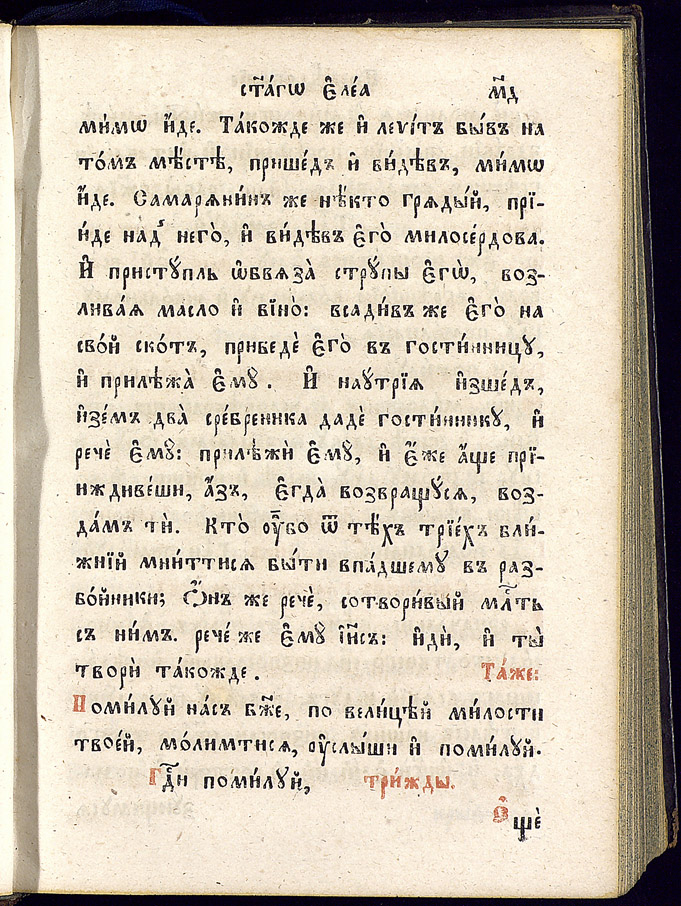 ст҃а́гѡ є҆ле́а м҃д
ми́мѡ и҆́де. Та́кожде же и҆ леѵі́тъ бы́въ на
то́мъ мѣ́стѣ, прише́дъ и҆ ви́дѣвъ, ми́мѡ
и҆́де. Самарѧни́нъ же нѣ́кто грѧды́й, прї-
и́де над̾ него̀, и҆ ви́дѣвъ є҆го̀ милосе́рдова.
И҆ пристꙋ́пль ѡ҆бвѧза̀ стрꙋ́пы є҆гѡ̀, воз-
лива́ѧ масло и҆ вїно̀: всади́въ же є҆го̀ на
сво́й ско́тъ, приведѐ є҆го̀ въ гости́нницꙋ,
и҆ прилѣжа̀ є҆мꙋ̀. И҆ наꙋ́трїѧ и҆зше́дъ,
и҆зе́мъ два̀ сре́бреника дадѐ гости́нникꙋ, и҆
речѐ є҆мꙋ̀: прилѣжѝ є҆мꙋ̀, и҆ є҆́же а҆́ще прї-
иждиве́ши, а҆́зъ, є҆гда̀ возвращꙋ́сѧ, воз-
да́мъ тѝ. Кто̀ ᲂу҆̀бо ѿ тѣ́хъ трїе́хъ бли́-
жнїй мни́ттисѧ бы́ти впа́дшемꙋ въ раз-
бо́йники; Ѻ҆́нъ же речѐ, сотвори́вый млⷭ҇ть
съ ни́мъ. рече́ же є҆мꙋ̀ і҆и҃съ: и҆дѝ, и҆ ты̀
творѝ та́кожде. Та́же:
Поми́лꙋй на́съ бж҃е, по вели́цѣй ми́лости
твое́й, мо́лимтисѧ, ᲂу҆слы́ши и҆ поми́лꙋй.
Гдⷭ҇и поми́лꙋй, три́жды.
Є҆щѐ